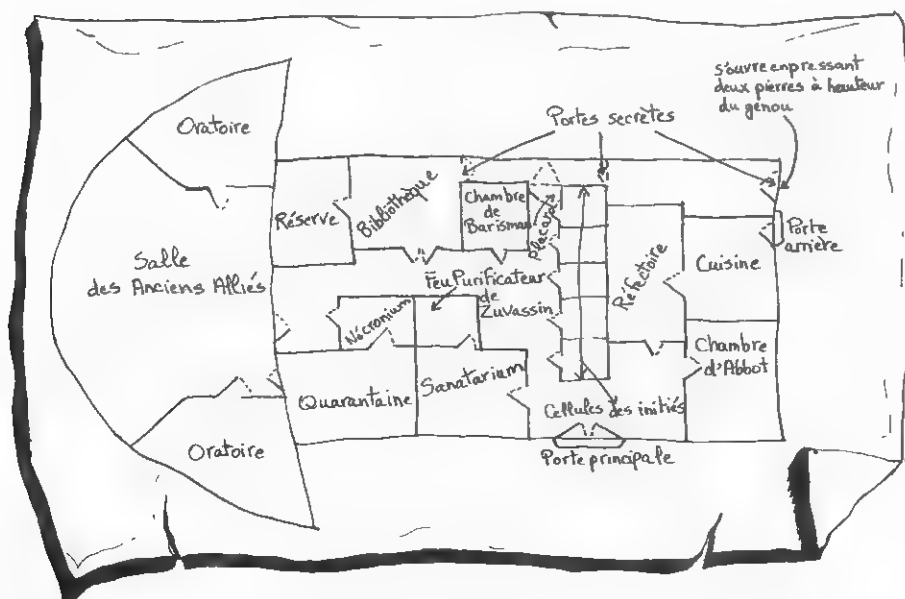 s'ouvre en pressant
deux pierres à hauteur
du genou
Portes secrètes
Oratoire
Réserve
Bibliothèque
Chambre
de
Barisman
Placard
Porte
arrière
Salle
des Anciens Alliés
Feu Purificateur
de
Zuvassin
Réfectoire
Cuisine
Nécronium
Chambre
d'Abbot
Quarantaine
Sanatarium
Cellules des initiés
Oratoire
Porte principale